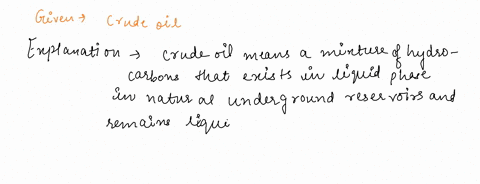 Given → Crude oil
Explanation → Crude oil means a mixture of hydro-
carbons that exists in liquid phase
in natural underground reservoirs and
remains liqui